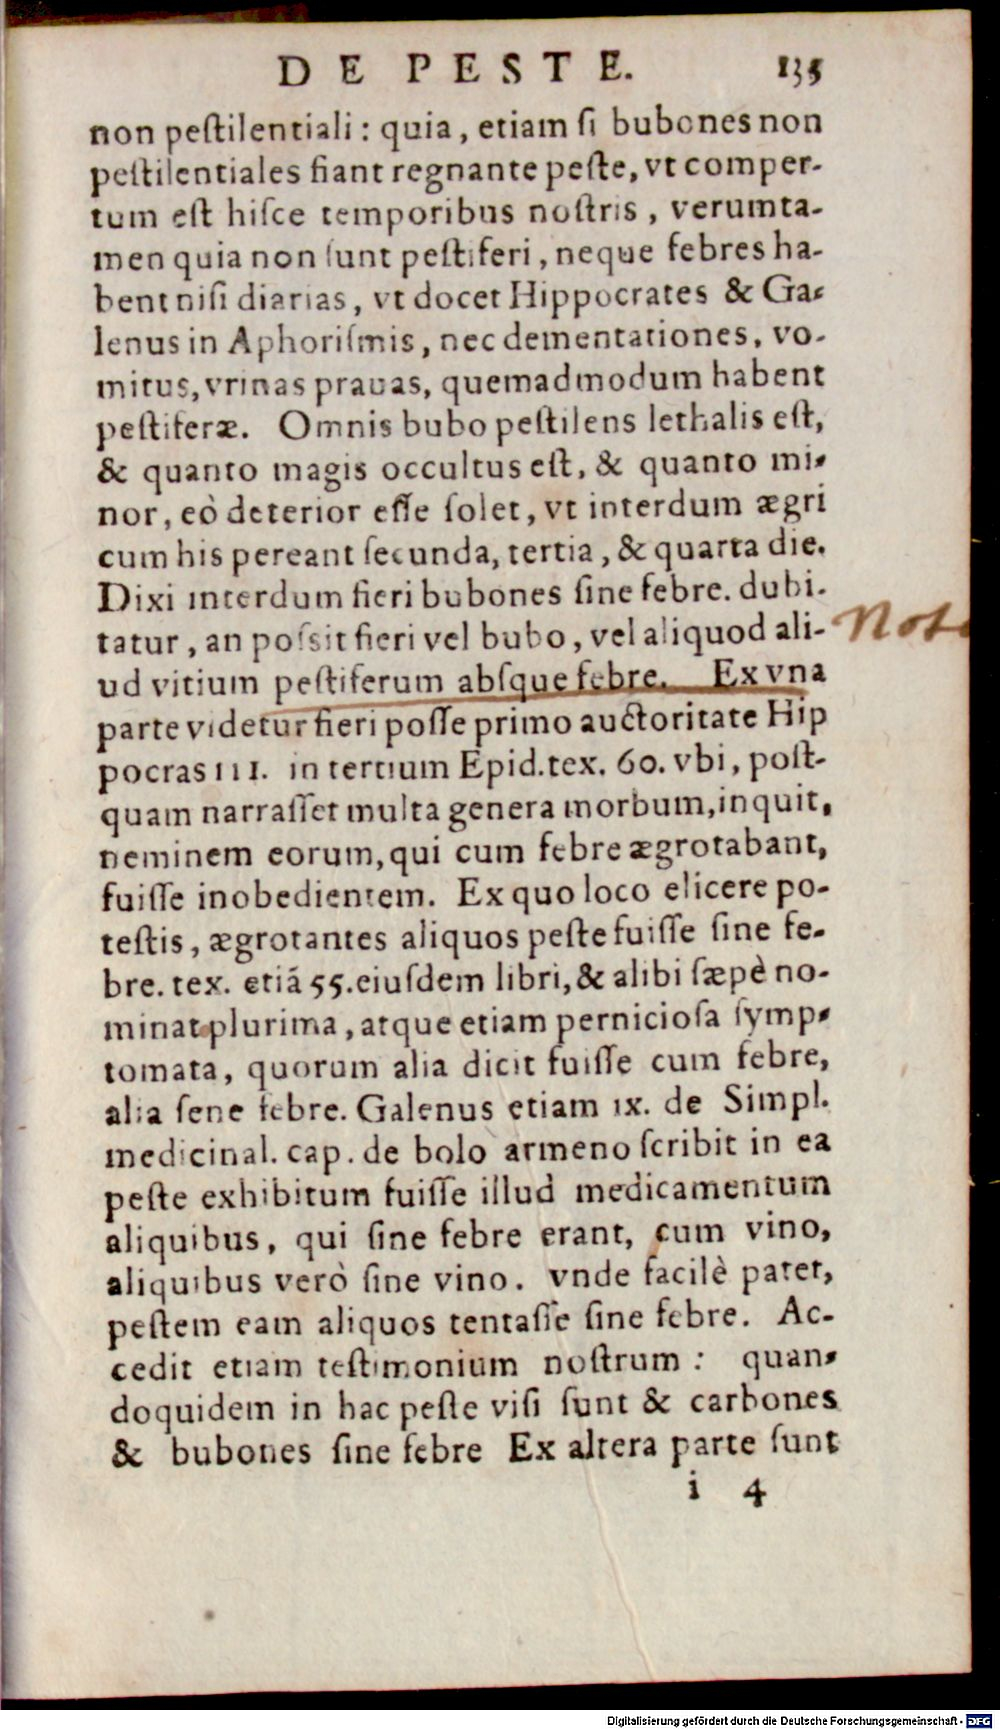 DE PESTE. 135
non peſtilentiali : quia, etiam ſi bubones non
peſtilentiales fiant regnante peſte, vt comper-
tum eſt hiſce temporibus noſtris, verumta-
men quia non ſunt peſtiferi, neque febres ha-
bent niſi diarias, vt docet Hippocrates & Ga-
lenus in Aphoriſmis, nec dementationes, vo-
mitus, vrinas prauas, quemadmodum habent
peſtiferæ. Omnis bubo peſtilens lethalis eſt,
& quanto magis occultus eſt, & quanto mi-
nor, eò deterior eſſe ſolet, vt interdum ægri
cum his pereant ſecunda, tertia, & quarta die.
Dixi interdum fieri bubones ſine febre. dubi-
tatur, an poſsit fieri vel bubo, vel aliquod ali-
Nota
ud vitium peſtiferum abſque febre. Ex vna
parte videtur fieri poſſe primo auctoritate Hip
pocras III. in tertium Epid. tex. 60. vbi, poſt-
quam narraſſet multa genera morbum, inquit,
neminem eorum, qui cum febre ægrotabant,
fuiſſe inobedientem. Ex quo loco elicere po-
teſtis, ægrotantes aliquos peſte fuiſſe ſine fe-
bre. tex. etiã 55. eiuſdem libri, & alibi ſæpè no-
minat plurima, atque etiam pernicioſa ſymp-
tomata, quorum alia dicit fuiſſe cum febre,
alia ſene febre. Galenus etiam IX. de Simpl.
medicinal. cap. de bolo armeno ſcribit in ea
peſte exhibitum fuiſſe illud medicamentum
aliquibus, qui ſine febre erant, cum vino,
aliquibus verò ſine vino. vnde facilè patet,
peſtem eam aliquos tentaſſe ſine febre. Ac-
cedit etiam teſtimonium noſtrum : quan-
doquidem in hac peſte viſi ſunt & carbones
& bubones ſine febre Ex altera parte ſunt
i 4
Digitalisierung gefördert durch die Deutsche Forschungsgemeinschaft - DFG